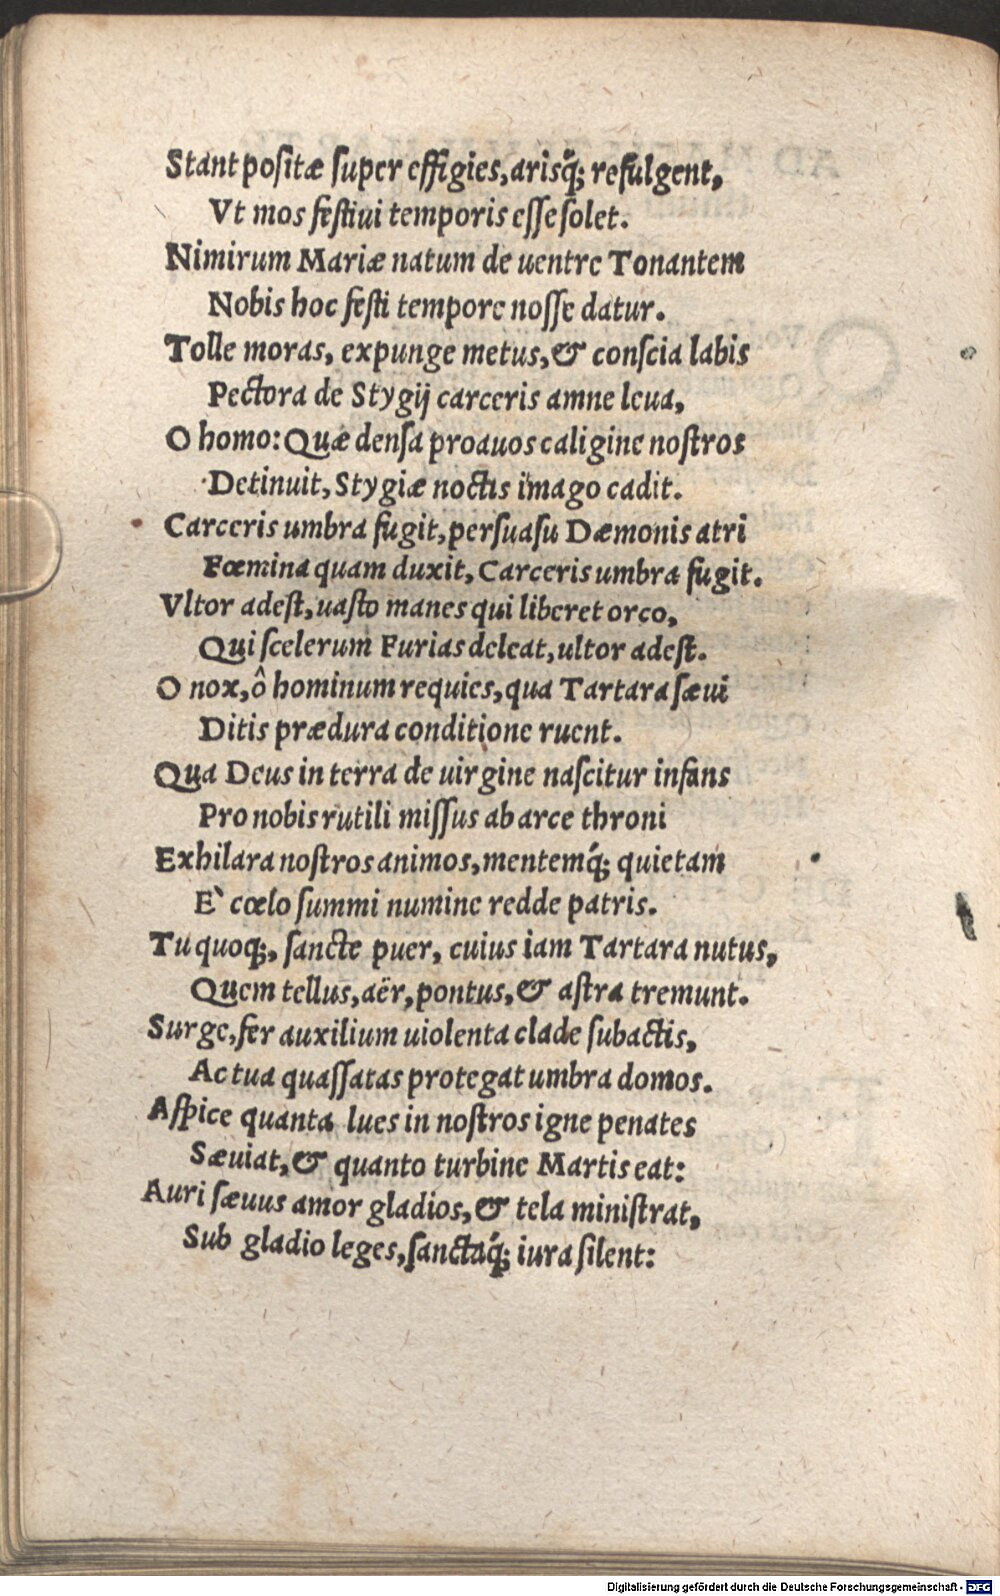 Stant positæ super effigies, arisq́; refulgent,
Vt mos festiui temporis esse solet.
Nimirum Mariæ natum de uentre Tonantem
Nobis hoc festi tempore nosse datur.
Tolle moras, expunge metus, & conscia labis
Pectora de Stygij carceris amne leua,
O homo: Quæ densa proauos caligine nostros
Detinuit, Stygiæ noctis imago cadit.
Carceris umbra fugit, persuasu Dæmonis atri
Fœmina quam duxit, Carceris umbra fugit.
Vltor adest, uasto manes qui liberet orco,
Qui scelerum Furias deleat, ultor adest.
O nox, ô hominum requies, qua Tartara sæui
Ditis prædura conditione ruent.
Qua Deus in terra de uirgine nascitur infans
Pro nobis rutili missus ab arce throni
Exhilara nostros animos, mentemq́; quietam
E` cœlo summi numine redde patris.
Tu quoq;, sancte puer, cuius iam Tartara nutus,
Quem tellus, aër, pontus, & astra tremunt.
Surge, fer auxilium uiolenta clade subactis,
Ac tua quassatas protegat umbra domos.
Aspice quanta lues in nostros igne penates
Sæuiat, & quanto turbine Martis eat:
Auri sæuus amor gladios, & tela ministrat,
Sub gladio leges, sanctaq́; iura silent:
Digitalisierung gefördert durch die Deutsche Forschungsgemeinschaft - DFG